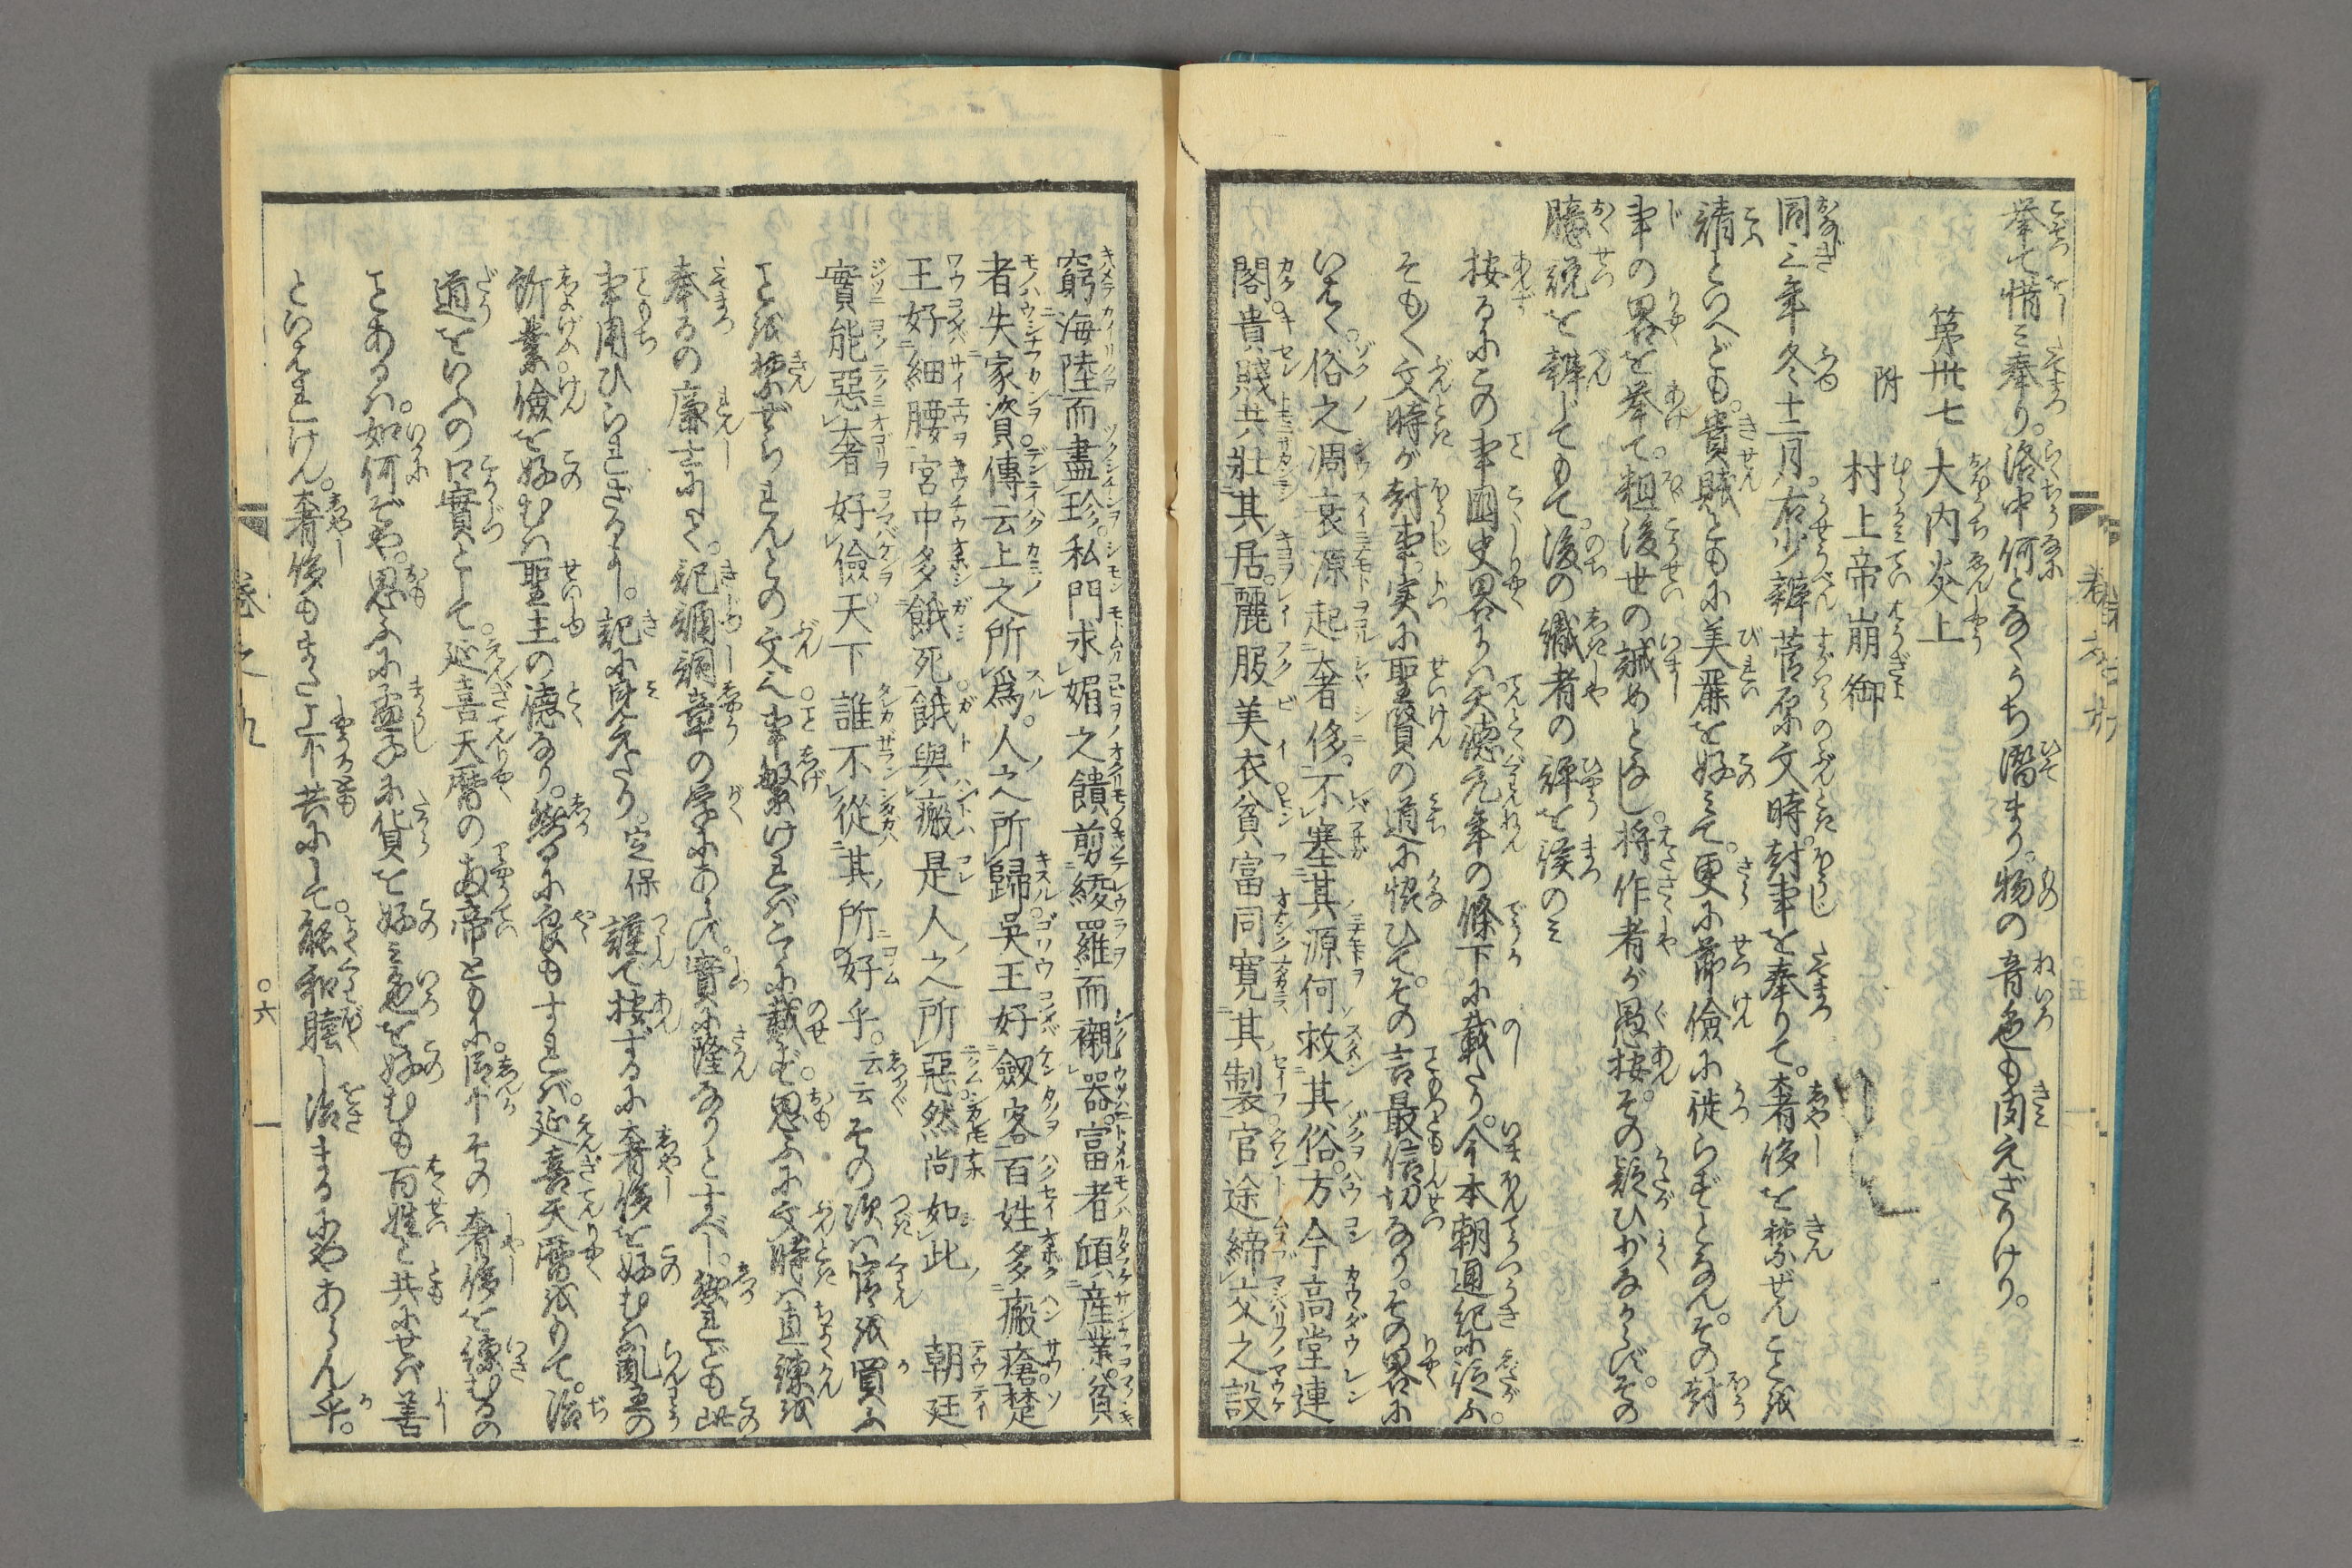 挙て惜ミ奉り。洛中何となくうち潜まり。物の音色も聞えざりけり。
第卅七　大内炎上
附　村上帝崩御
同三年冬十二月。右少辨菅原文時。封事を奉りて。奢侈を禁ぜんことを
請といへども。貴賎ともに美麗を好ミて。更に節儉に徙らずとなん。その封
事の畧を挙て。粗後世の誡めとなし。将作者が愚按。その疑ひ少なからず。その
臆説を辨じてもて。後の識者の評を俟のミ
按るにこの事國史畧にハ。天徳元年の條下に載たり。今本朝通紀に従ふ。
そも〱文時が封事。実に聖賢の道に恊ひて。その言最信切なり。その畧に
いはく。俗之凋衰源起奢侈。不塞其源何救其俗。方今高堂連
閣。貴賎共壯其居。麗服美衣。貧富同寛其製。官途締交之設
窮海陸而盡珍。私門求媚之饋剪綾羅而襯器。富者傾産業。貧
者失家資。傳云上之所爲。人之所歸。呉王好劔客百姓多瘢瘡。楚
王好細腰宮中多餓死。餓與瘢是人之所惡。然尚如此　朝廷
實能惡奢好儉。天下誰不從其所好乎。云云その次ハ官を買ふ
ことを禁ぜられんとの文なり。事繁ければこゝに載ず。思ふに文時ハ直諫を
奉るの廉士にして。記誦詞章の学にあらず。實に隆なりとすべし。然れども此
事用ひられざるよし。記に見えたり。定保謹で按ずるに奢侈を好むハ乱主の
所業。儉を好むハ聖主の徳なり。然るに良もすれば。延喜天暦をもて。治
道をいふの口實として。延喜天暦の两帝ともに。臣下その奢侈を諫むるの
ことあるハ。如何ぞや。思ふに孟子に貨を好ミ色を好むも百姓と共にせば善
といはれけん。奢侈もまた上下共にして。能和睦し治まるにやあらん乎。
巻之九
〇六